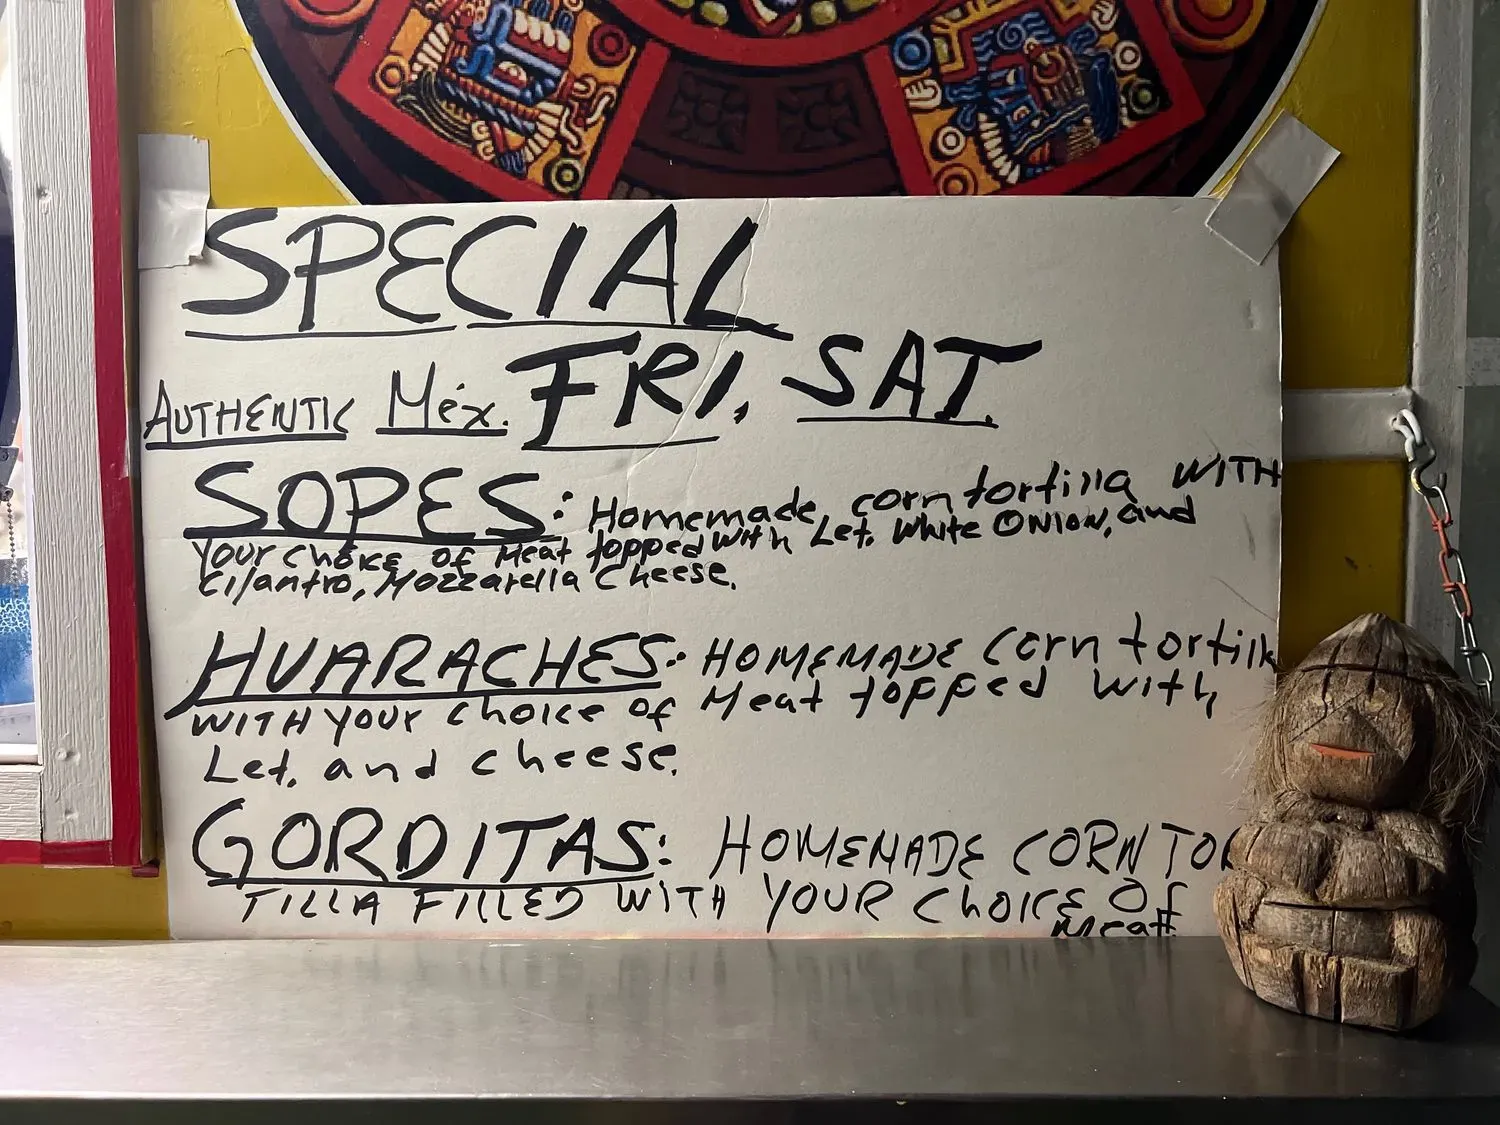 SPECIAL
AUTHENTIC Méx. FRI, SAT.
SOPES: Homemade, corn tortilla WITH
YOUR CHOICE OF Meat topped with Let. White ONION, and
Cilantro, Mozzarella Cheese.
HUARACHES: HOMEMADE Corn tortilla
WITH YOUR CHOICE OF Meat topped with,
Let. and cheese.
GORDITAS: HOMEMADE CORN TOR
TILLA FILLED WITH YOUR CHOICE OF
Meat